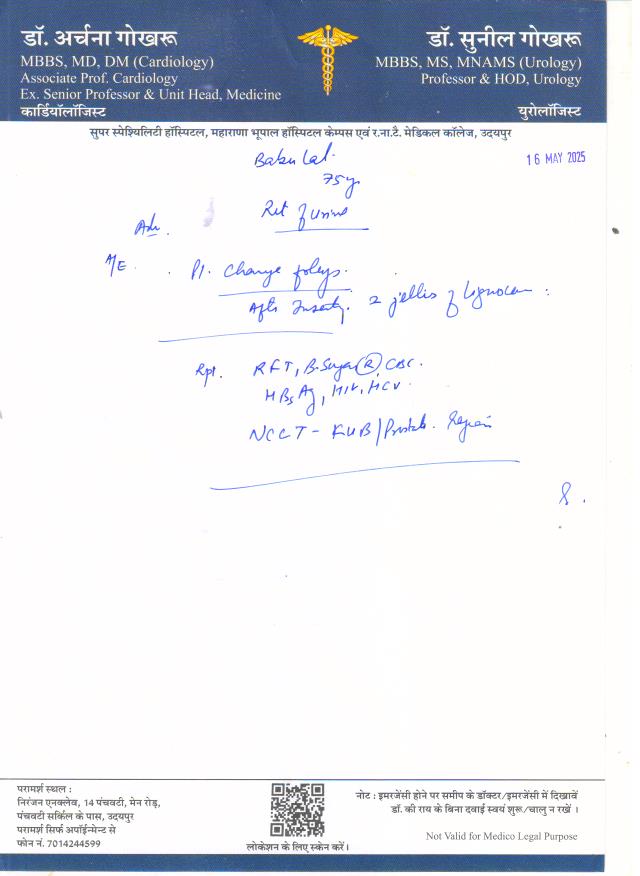 डॉ. अर्चना गोखरू
MBBS, MD, DM (Cardiology)
Associate Prof. Cardiology
Ex. Senior Professor & Unit Head, Medicine
कार्डियॉलॉजिस्ट
डॉ. सुनील गोखरू
MBBS, MS, MNAMS (Urology)
Professor & HOD, Urology
युरोलॉजिस्ट
सुपर स्पेश्यिलिटी हॉस्पिटल, महाराणा भूपाल हॉस्पिटल केम्पस एवं र.ना.टै. मेडिकल कॉलेज, उदयपुर
16 MAY 2025
Babu Lal.
75y
Ret of urine
Adv.
Pl. Change foleys.
After 2 jellis of
Rpt. RFT, B. Sugar (R), CBC.
HBsAg, HIV, HCV.
NCCT - KUB/Prostate Region
परामर्श स्थल :
निरंजन एनक्लेव, 14 पंचवटी, मेन रोड़,
पंचवटी सर्किल के पास, उदयपुर
परामर्श सिर्फ अपॉईन्मेन्ट से
फोन नं. 7014244599
लोकेशन के लिए स्केन करें।
नोट : इमरजेंसी होने पर समीप के डॉक्टर/इमरजेंसी में दिखावें
डॉ. की राय के बिना दवाई स्वयं शुरू/चालु न रखें ।
Not Valid for Medico Legal Purpose